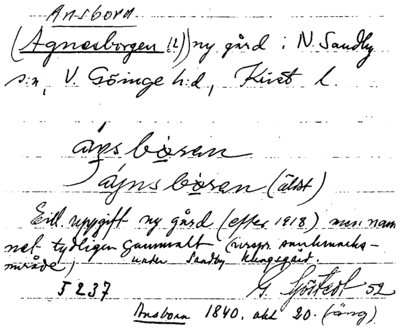 Ansborn
(Agnesborgen (2)) ny gård i N. Sandby
s:n, V. Göinge h:d, Krist l.
áŋs bo̱ren
áŋns bo̱ren (äldst)
Enl. uppgift ny gård (efter 1918) men nam
net tydligen gammalt (urspr. sankmarks-
område, under Sandby klingsgård.
J 237 G. Sjöstedt 52
Ansborn 1840. akt 20. (äng)